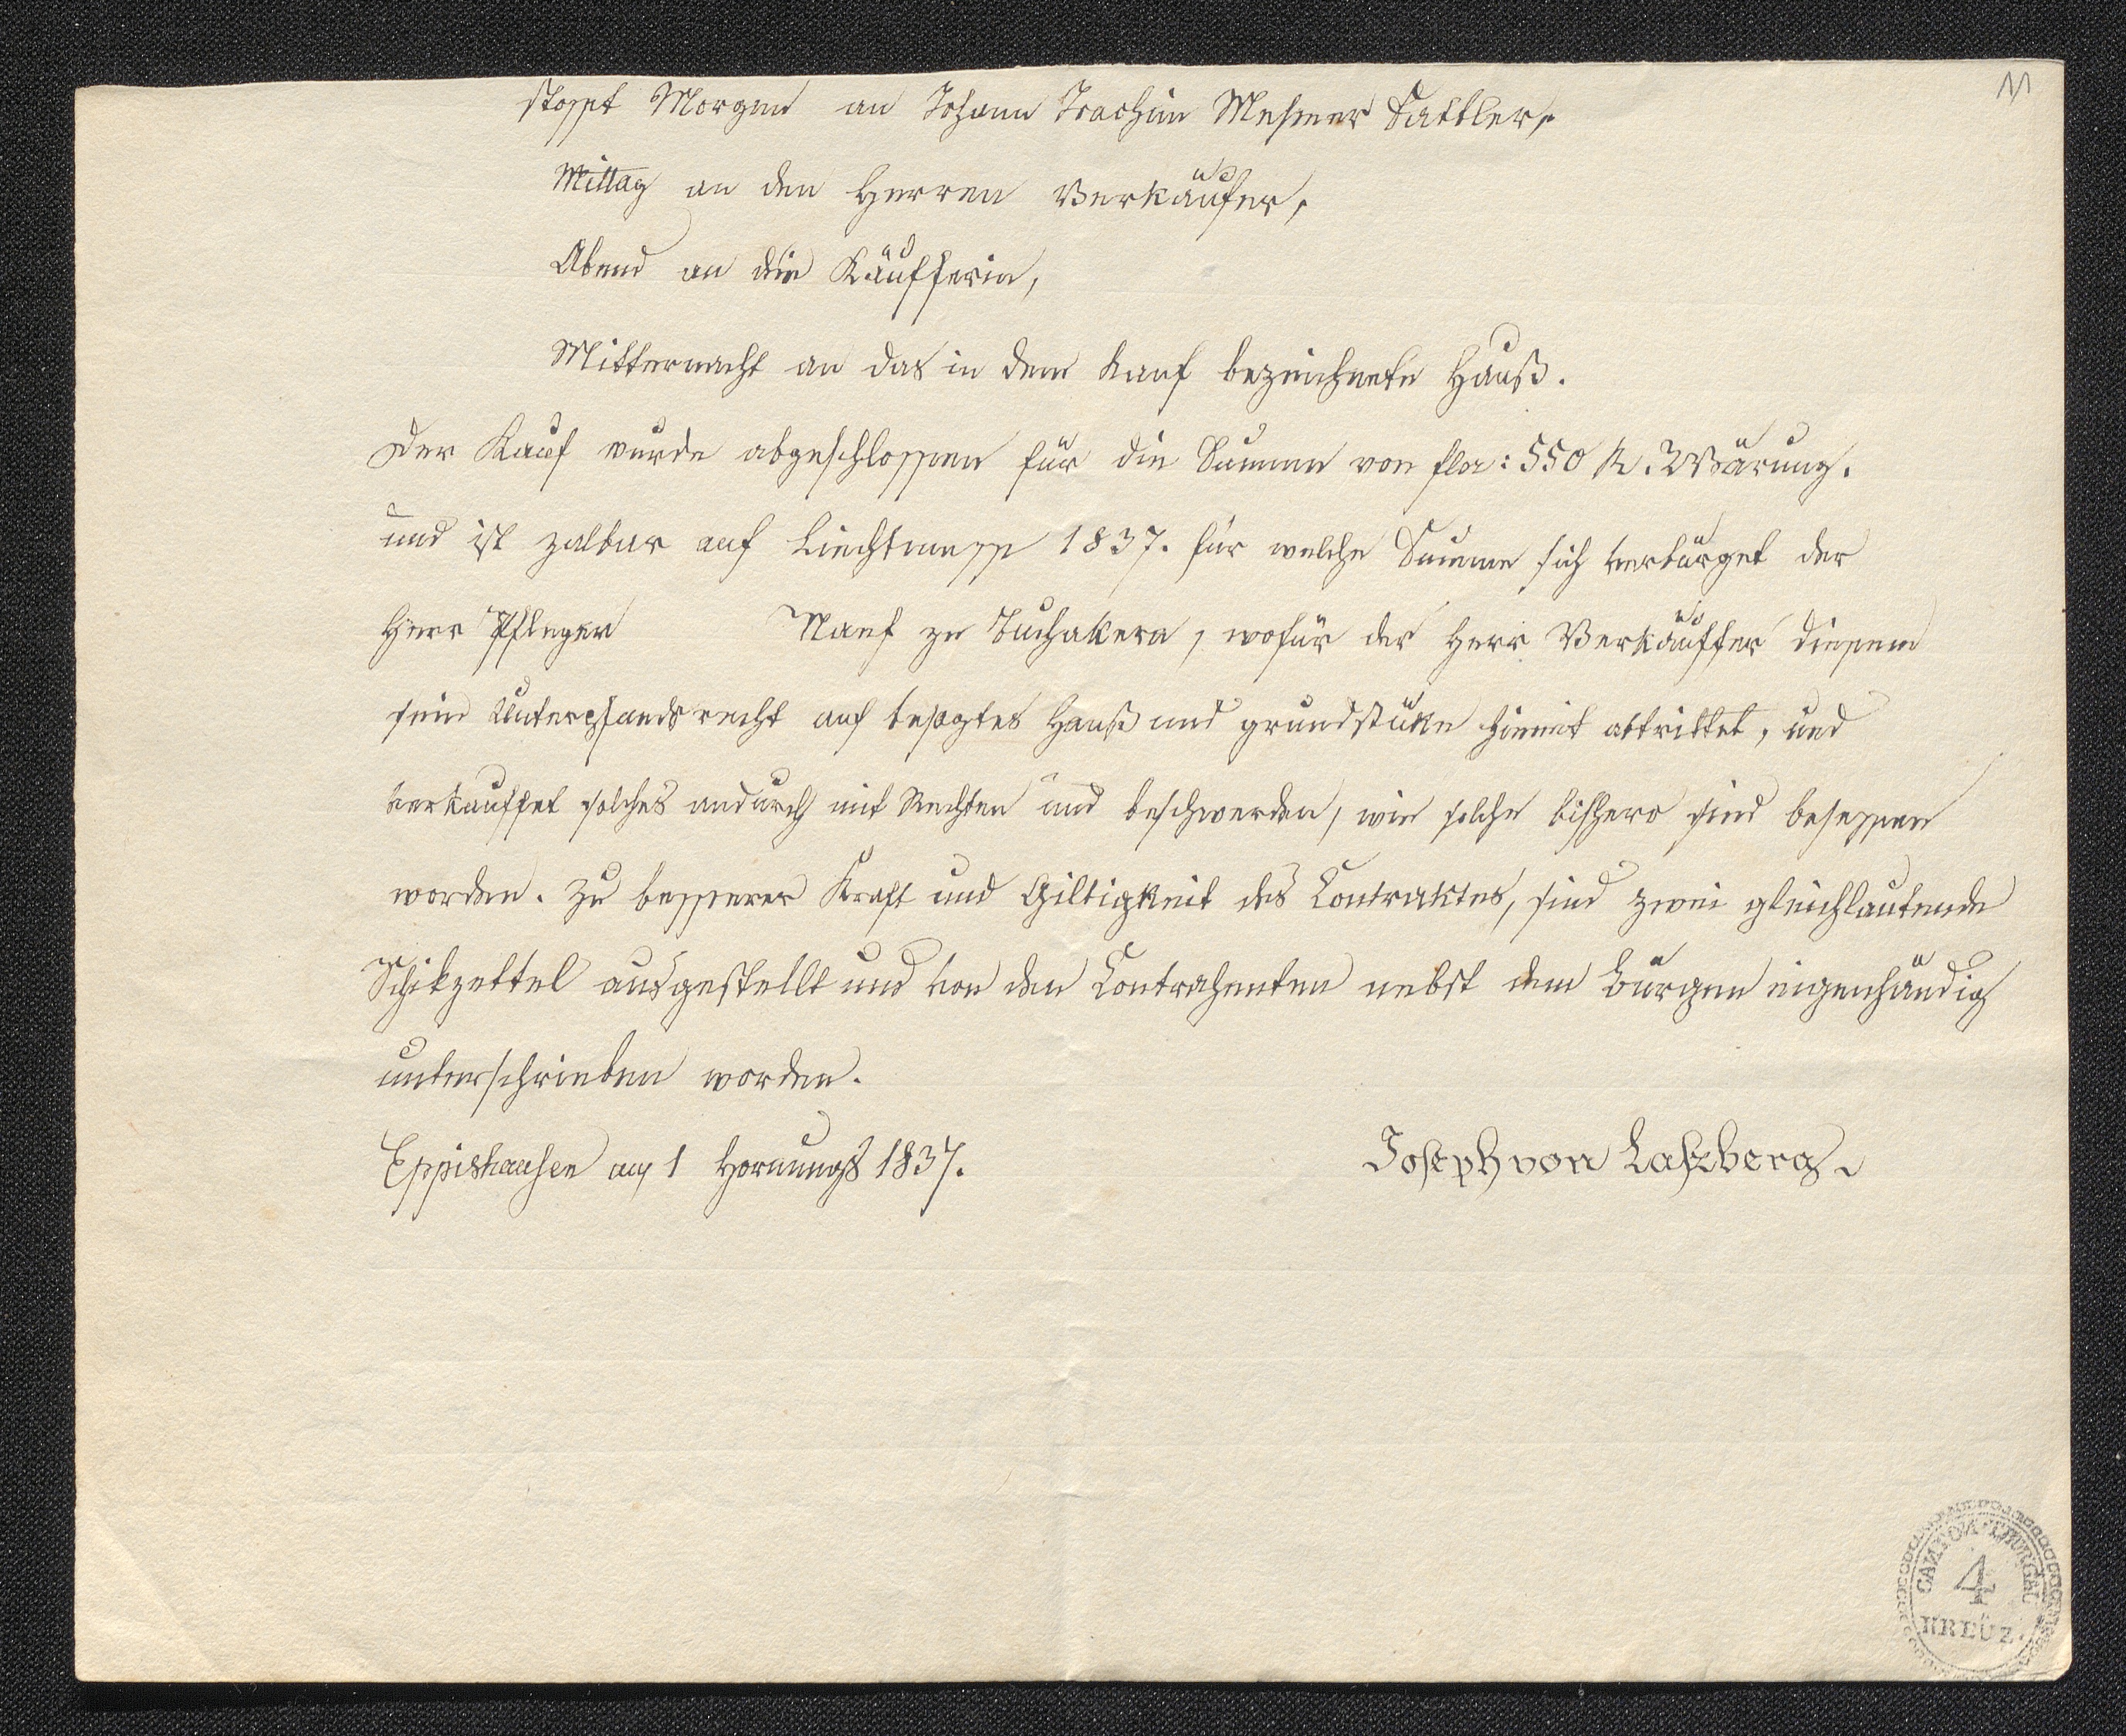 11
stosst Morgens an Johann Joachim Mesmer Sattler,
Mittag an den Herren Verkäufer,
Abend an die Käufferin,
Mitternacht an das in dem Kauf bezeichnete Hauß.
Der Kauf wurde abgeschlossen für die Summe von flor: 550 R. Wärung.
und ist zalbar auf Liechtmesse 1837. für welche Summe sich verbürget der
Herr Pfleger Nauf zu Buchakern, wofür der Herr Verkäuffer diesem
sein Unterpfandsrecht auf besagtes Hauß und grundstüke hiemit abtrittet, und
verkauffet solches andurch mit Rechten und beschwerden, wie solche bishero sind besessen
worden. Zu besserer Kraft und Giltigkeit des Contraktes, sind zwei gleichlautende
Schikzettel ausgestellt und von den Contrahenten nebst dem Bürgen eigenhändig
unterschrieben worden.
Eppishausen am 1 Hornungs 1837.
Joseph von Laßberg.
CANTON THURGAU
4
KREUZ.